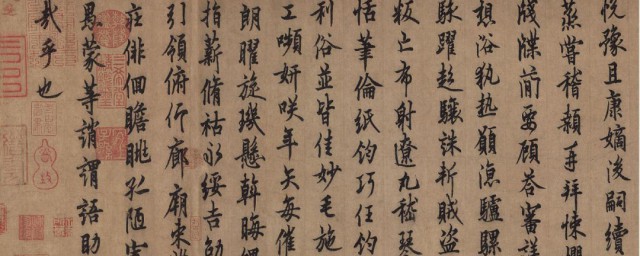 悅豫且康嫡後嗣續
蒸嘗稽顙再拜悚懼
牋牒簡要顧答審詳
想浴執熱願涼驢騾
駭躍超驤誅斬賊盜
叛亡布射遼丸嵇琴
恬筆倫紙鈞巧任釣
利俗並皆佳妙毛施
工嚬妍咲年矢每催
朗曜旋璣懸斡晦魄
指薪脩祜永綏吉劭
引領俯仰廊廟束帶
莊俳佪瞻眺孤陋寡
愚蒙等誚謂語助
哉乎也